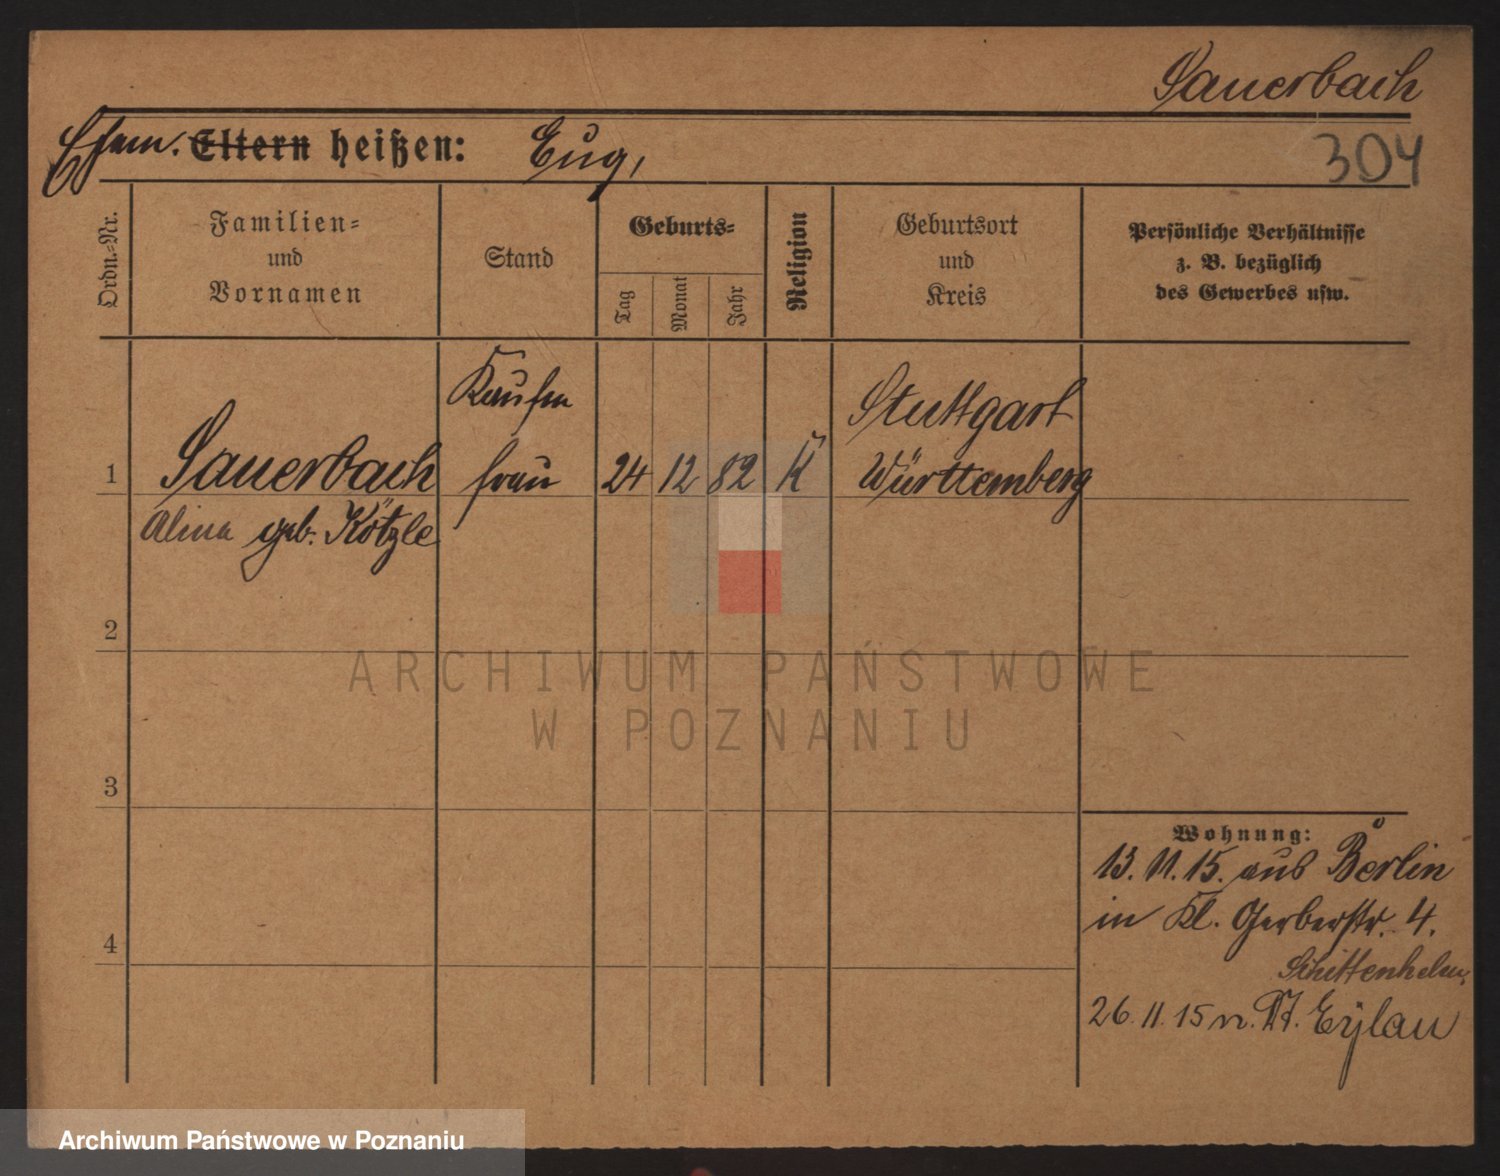 Sauerbach
304
Ehem. Eltern heißen: Eug,
Ordn.-Nr.
Familien-
und
Vornamen
Stand
Geburts-
Tag
Monat
Jahr
Religion
Geburtsort
und
Kreis
Persönliche Verhältnisse
z. B. bezüglich
des Gewerbes usw.
1
Sauerbach
Alina geb. Kötzle
Kaufm
frau
24 12 82 K
Stuttgart
Württemberg
2
3
4
Wohnung:
13. 11. 15. aus Berlin
in Kl. Gerberstr. 4.
Schittenhelm,
26. 11. 15 n. Dt. Eylau
ARCHIWUM PAŃSTWOWE
W POZNANIU
Archiwum Państwowe w Poznaniu